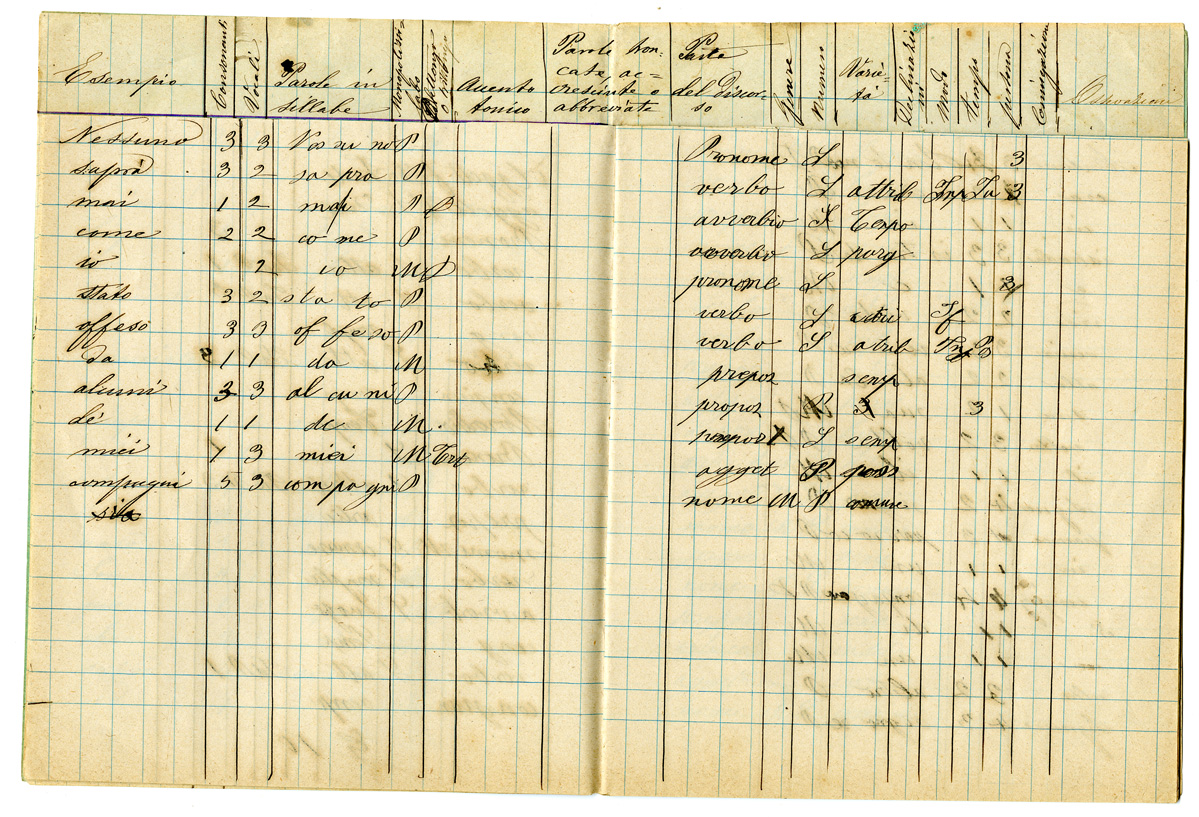 Esempio Consonanti Vocali Parole in sillabe Monosillabo o polisillabo Dittongo o trittongo Accento tonico Parole troncate, accresciute o abbreviate Parte del discorso Genere Numero Varietà Modo tempo persona Coniugazione Osservazioni
Nessuno 3 3 Nes su no P Pronome S 3
saprà 3 2 sa pra P verbo S attrib Inp Fu 3
mai 1 2 mai P D avverbio S Tenpo
come 2 2 co me P avverbio S parag
io 2 io M D pronome S 3
stato 3 2 sta to P verbo S If
offeso 3 3 of fe so P verbo S atrib Inf P
da 1 1 da M prepos senp
alcuni 3 3 al cu ni P propos P 3 3
de 1 1 de M. prepos S senp
miei 1 3 miei M Trt agget P poss
compagni 5 3 com pa gni P nome M P comune
sia